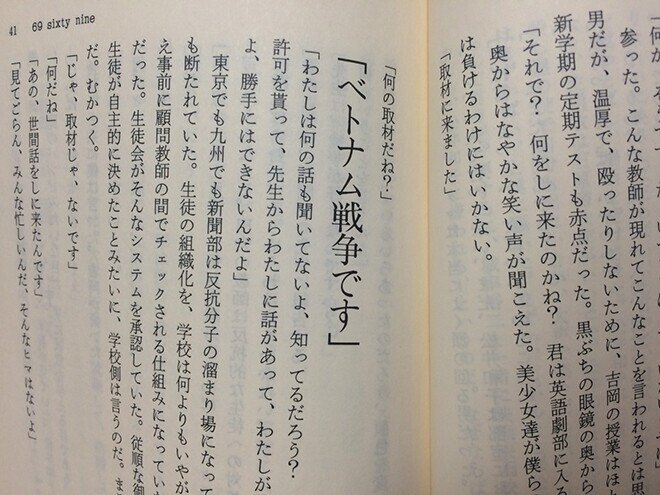 41　69 sixty nine
参った。こんな教師が現れてこんなことを言われるとは思
男だが、温厚で、殴ったりしないために、吉岡の授業はほ
新学期の定期テストも赤点だった。黒ぶちの眼鏡の奥から
「それで？　何をしに来たのかね？　君は英語劇部に入る
奥からはなやかな笑い声が聞こえた。美少女達が僕ら
は負けるわけにはいかない。
「取材に来ました」
「何の取材だね？」
「ベトナム戦争です」
「わたしは何の話も聞いてないよ、知ってるだろう？
許可を貰って、先生からわたしに話があって、わたしが
よ、勝手にはできないんだよ」
東京でも九州でも新聞部は反抗分子の溜まり場になって
も断たれていた。生徒の組織化を、学校は何よりもいやが
え事前に顧問教師の間でチェックされる仕組みになっていた
だった。生徒会がそんなシステムを承認していた。従順な御
生徒が自主的に決めたことみたいに、学校側は言うのだ。ま
だ。むかつく。
「じゃ、取材じゃ、ないです」
「何だね」
「あの、世間話をしに来たんです」
「見てごらん、みんな忙しいんだ、そんなヒマはないよ」